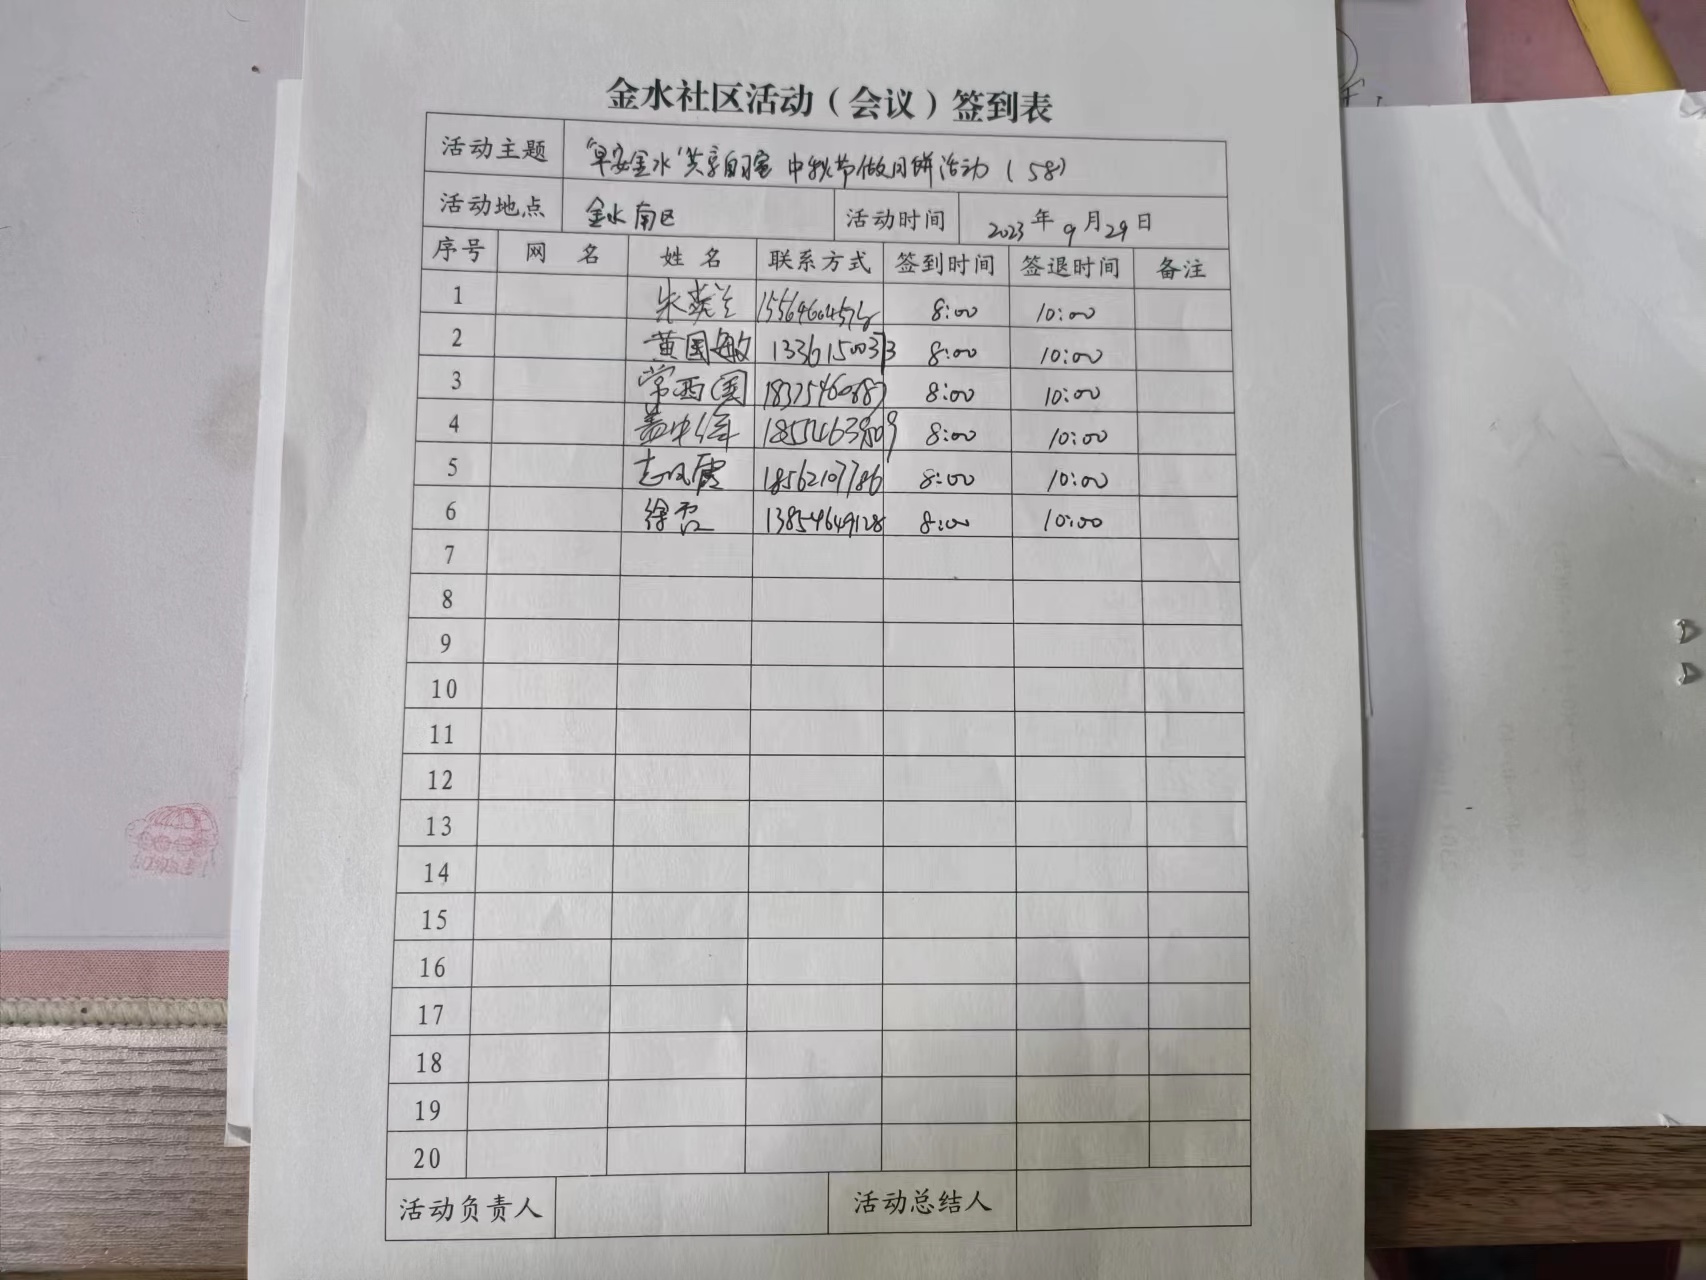 金水社区活动（会议）签到表
活动主题 "早安金水"共享自习室 中秋节做月饼活动（58）
活动地点 金水南区 活动时间 2023年9月29日
序号 网 名 姓 名 联系方式 签到时间 签退时间 备注
1 8:00 10:00
2 黄国敏 13361500373 8:00 10:00
3 常西国 8:00 10:00
4 8:00 10:00
5 18562107786 8:00 10:00
6 13854649128 8:00 10:00
7
8
9
10
11
12
13
14
15
16
17
18
19
20
活动负责人 活动总结人